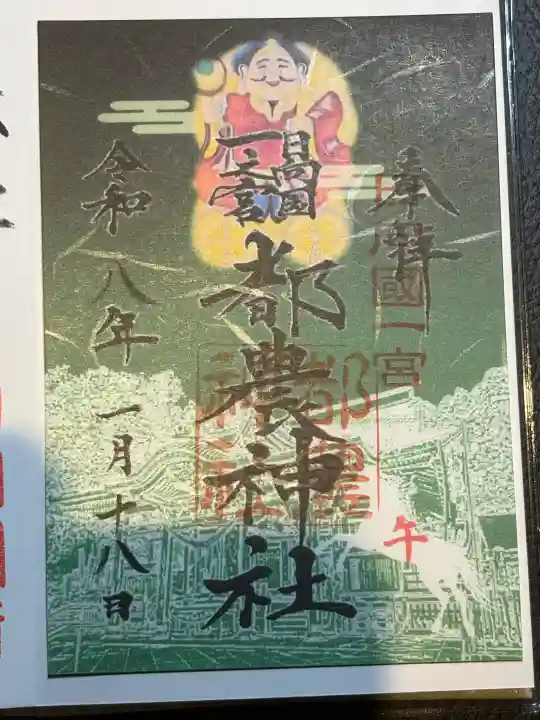 奉拝
日向國一宮
日向國
一之宮
都農神社
都農神社
午
令和八年一月十八日